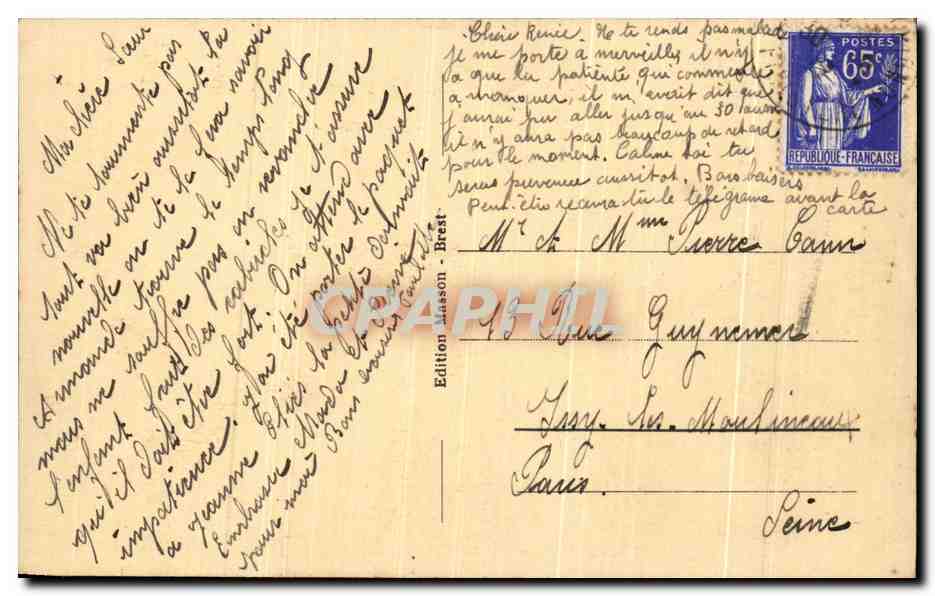 Ma chère Sœur
Ne te tourmente pas
tout va bien aussitôt la
nouvelle on te le fera savoir
Armande trouve le temps long
mais ne souffre pas en revanche
l'enfant fait des cabrioles je t'assure
qu'il doit être fort. On attend avec
impatience. J'ai été porter le paquet
a Jeanne
Embrasse
pour moi Bons baisers
Chère Renée. Ne te rends pas malade
je me porte a merveilles il n'y
a que la patiente qui commence
a manquer, il m'avait dit que
j'aurai pu aller jusqu'au 30 aussi
il n'y aura pas beaucoup de retard
pour le moment. Calme toi tu
seras prevenue aussitot. Bons baisers
Peut-être recevra tu le télégrame avant la
carte
POSTES
65c
REPUBLIQUE-FRANÇAISE
Edition Masson - Brest
CPAPHIL
Mr et Mme Pierre Cann
13 Rue Guynemer
Issy-les-Moulineaux
Paris.
Seine